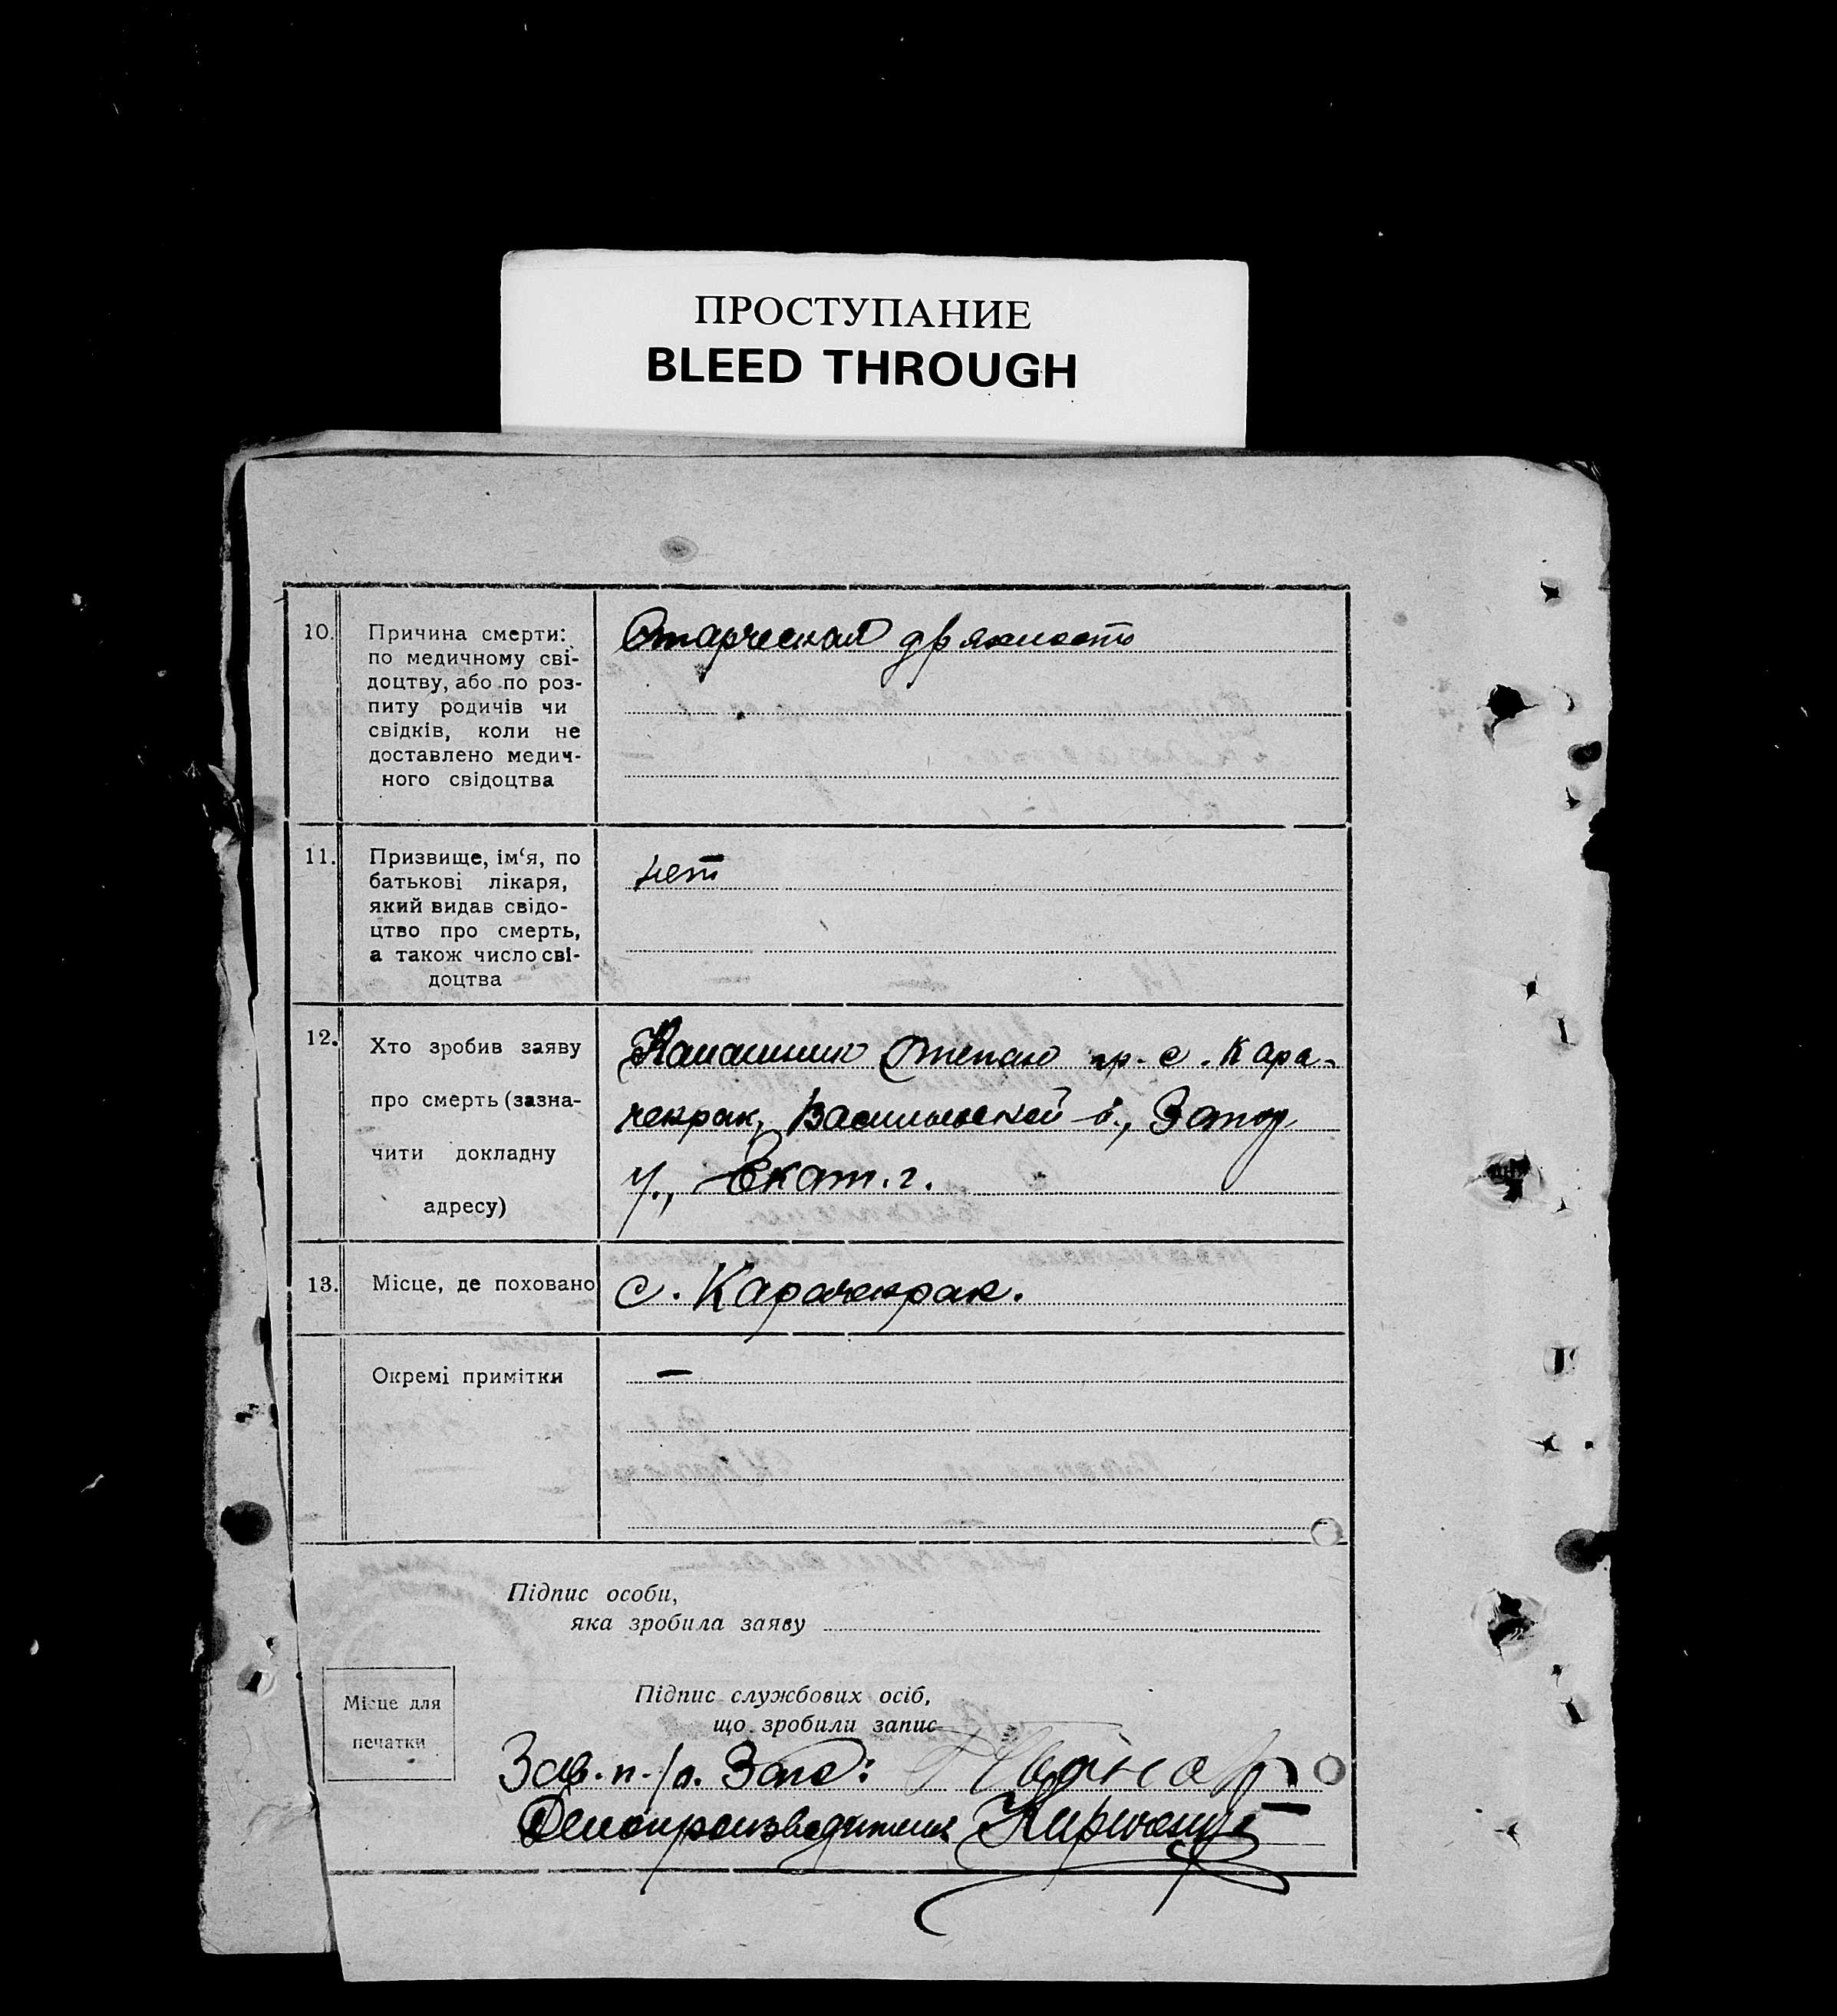 ПРОСТУПАНИЕ
BLEED THROUGH
10. Причина смерти:
по медичному сві-
доцтву, або по роз-
питу родичів чи
свідків, коли не
доставлено медич-
ного свідоцтва
Старческая дряхлость
11. Призвище, ім‘я, по
батькові лікаря,
який видав свідо-
цтво про смерть,
а також число сві-
доцтва
нет
12. Хто зробив заяву
про смерть (зазна-
чити докладну
адресу)
Степан гр. с. Кара-
чекрак, Васильевской в., Запор
у., Екат. г.
13. Місце, де поховано
с. Карачекрак.
Окремі примітки
—
Підпис особи,
яка зробила заяву
Місце для
печатки
Підпис службових осіб,
що зробили запис
Зав. п./о. Загс:
Делопроизводитель